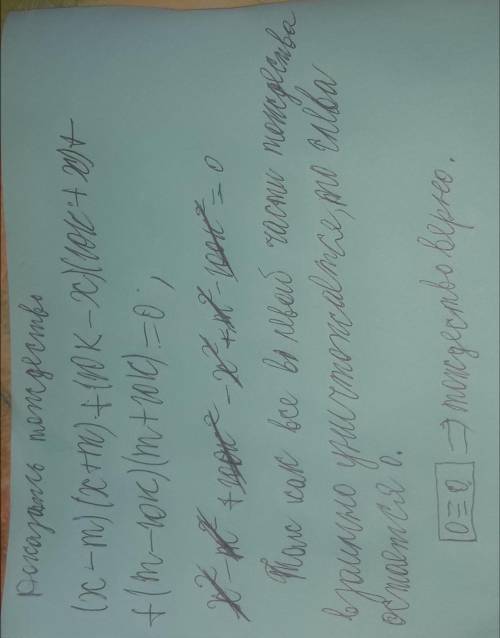 Доказать тождество
(x-m)(x+m)+(10к-x)(10к+x)+
+(m-10к)(m+10к)=0;
x²-m²+100к²-x²+m²-100к²=0
Так как все в левой части тождества
взаимно уничтожается, то слева
остается 0.
0=0 ⇒ тождество верно.